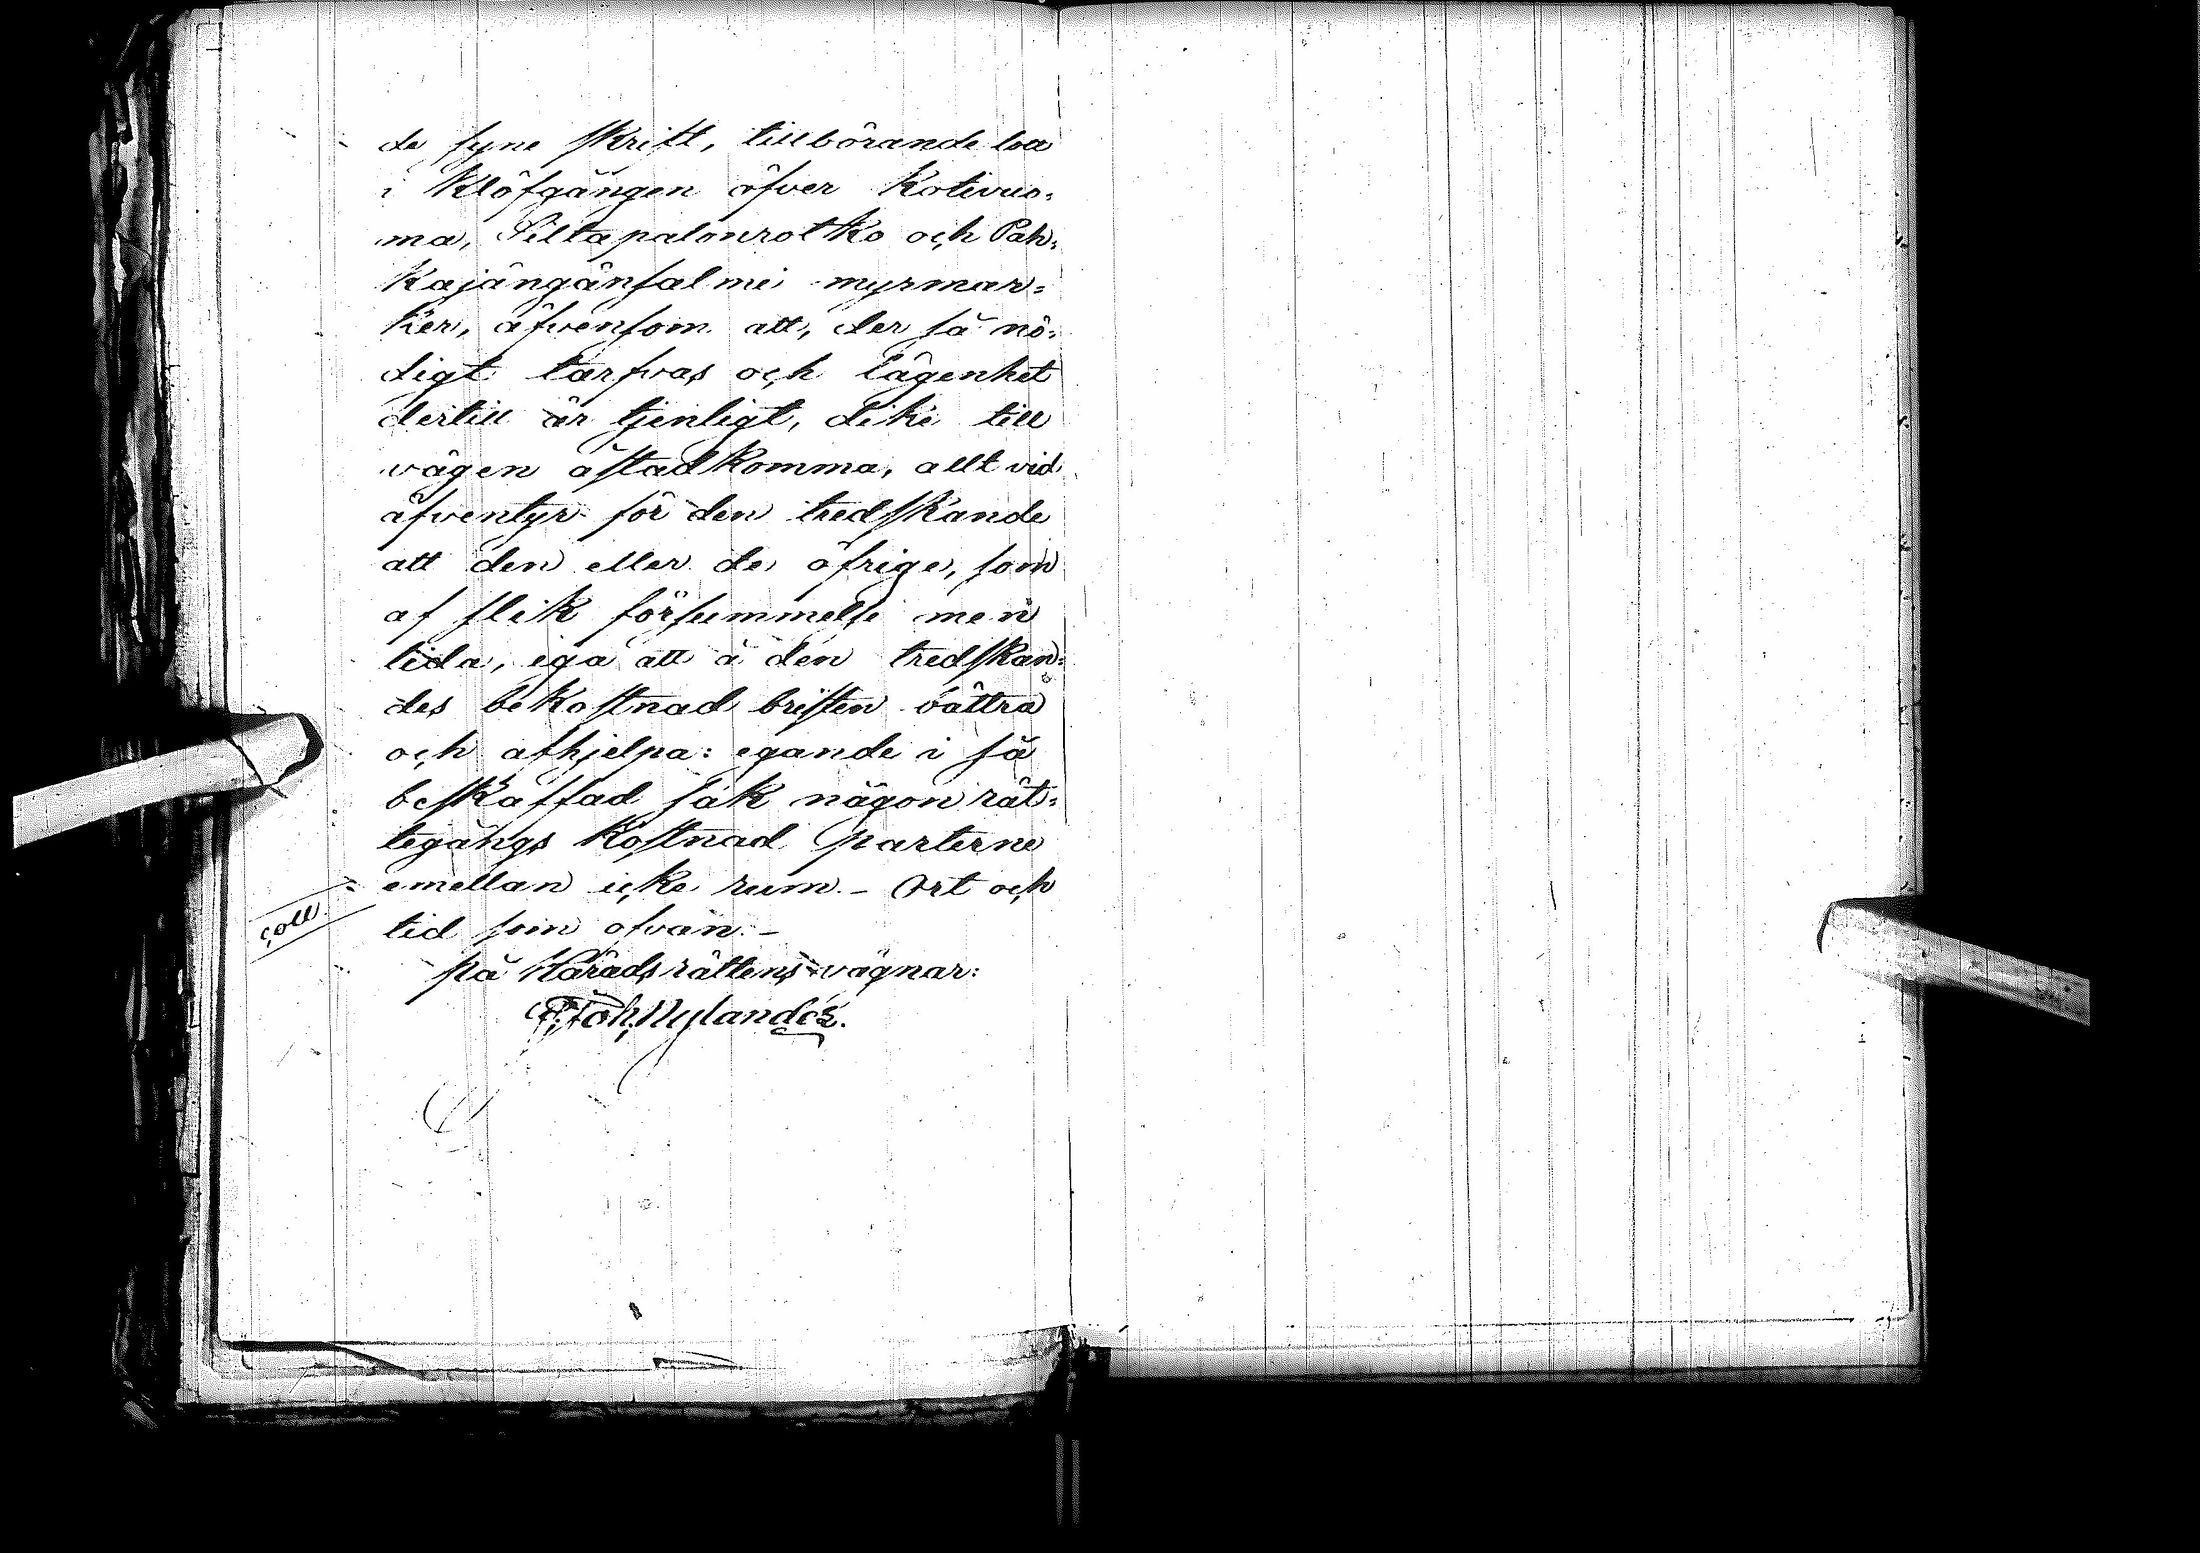 de syne skrift, tillbörande loa
i Klöfgången öfver Kotivuo=
ma, Siltapalonrotko och Pah=
kajängänsalmi myrmar=
ker, äfvensom att, der så nö=
digt tarfvas och lägenhet
dertill är tjenligt, dike till
vägen åstadkomma, allt vid
äfventyr för den tredskande
att den eller de öfrige, som
af slik försummelse men
lida, ega att å den tredskan=
des bekostnad bristen bättra
och afhjelpa: egande i så
beskaffad sak någon rät=
tegångs kostnad parterne
emellan icke rum. - Ort och
tid som ofvan. -
coll.
på Häradsrättens vägnar:
Joh. Nylander.